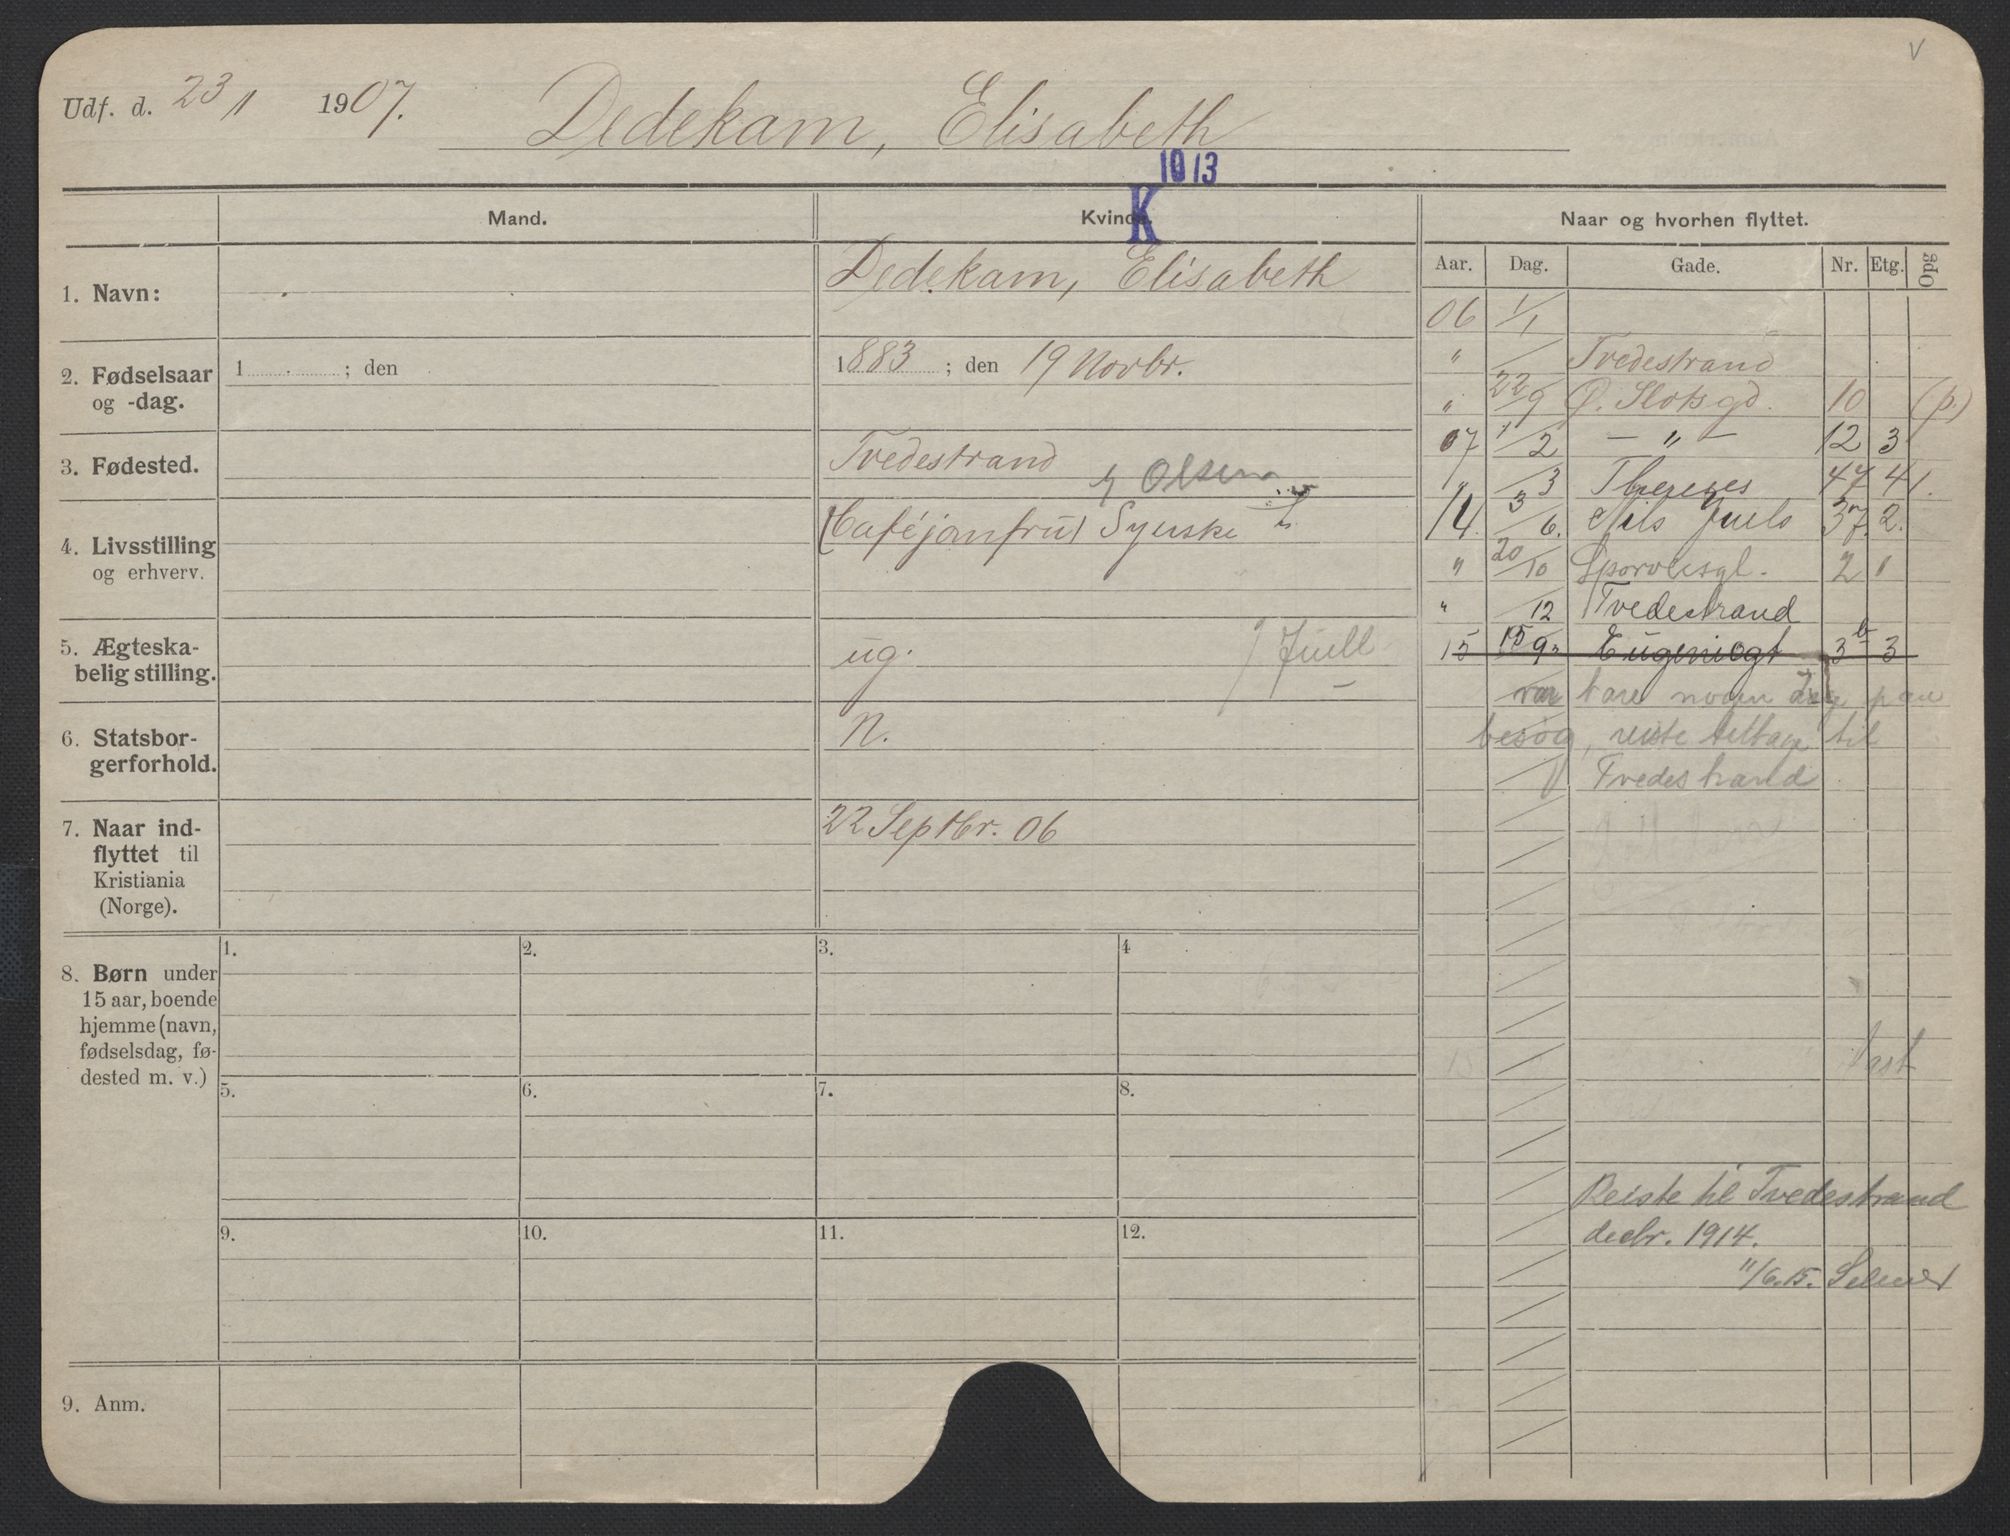 Udf. d. 23/1 1907. Dedekam, Elisabeth
V
1913
K
Mand. Kvinde. Naar og hvorhen flyttet.
Aar. Dag. Gade. Nr. Etg. Opg
1. Navn: Dedekam, Elisabeth
2. Fødselsaar og -dag.
1 ; den
1883 ; den 19 Novbr.
3. Fødested. Tvedestrand
Olsen
4. Livsstilling og erhverv.
(Caféjomfru) Syerske
5. Ægteskabelig stilling.
ug.
Juell
6. Statsborgerforhold.
N.
7. Naar indflyttet til Kristiania (Norge).
22 Septbr. 06
8. Børn under
15 aar, boende
hjemme (navn,
fødselsdag, fødested m. v.)
1. 2. 3. 4
5. 6. 7. 8.
9. 10. 11. 12.
9. Anm.
06 1/1
" Tvedestrand
" 22/9 Ø. Slotsgd. 10 (p.)
07 1/2 — " — 12 3
" /3 Thereses 47 4 1.
14. 3/6. Nils Juels 37. 2.
" 20/10 Sporveisgt. 2 1
" /12 Tvedestrand
15 15/9 Eugeniegt 3b 3
var bare nogen dag paa
besøg, reiste tilbage til
Tvedestrand
15
Reiste til Tvedestrand
decbr. 1914.
11/6.15. Selmer